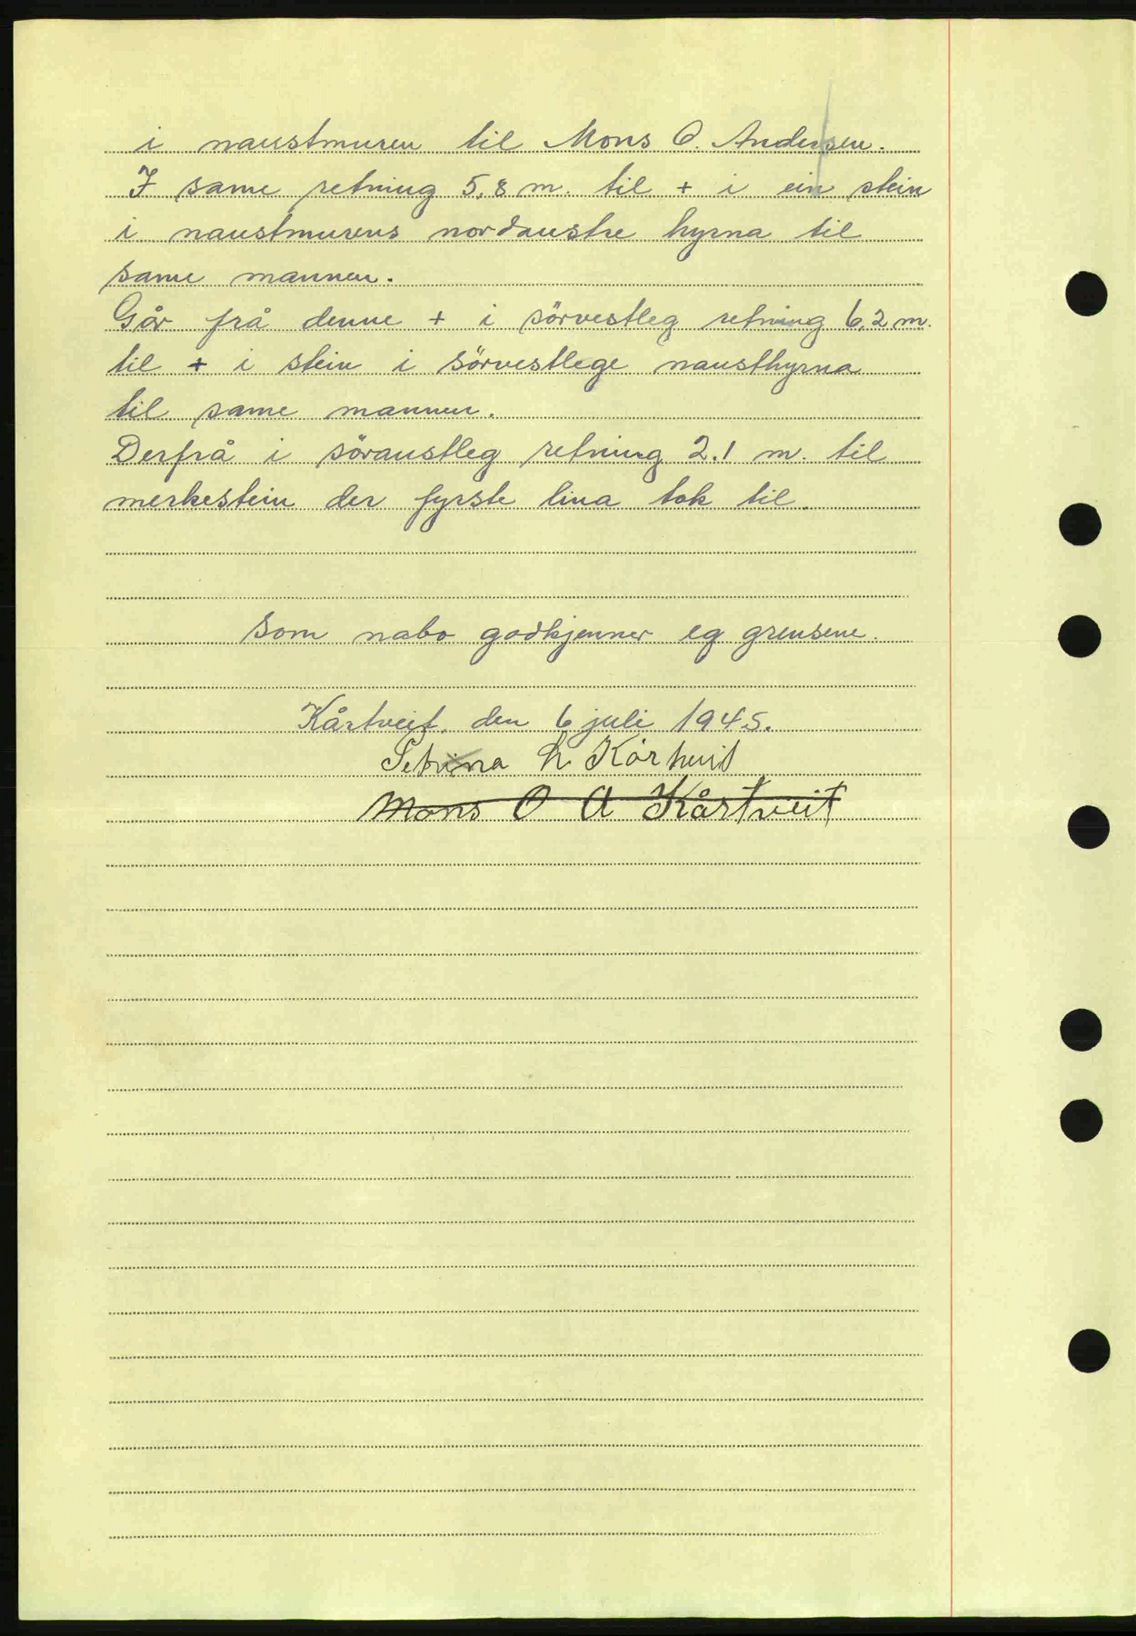 i naustmuren til Mons O. Andersen.
I same retning 5,8 m. til + i ein stein
i naustmurens nordaustre hyrna til
same mannen.
Går frå denne + i sörvestleg retning 6,2 m.
til + i stein i sörvestlege nausthyrna
til same mannen.
Derfrå i söraustleg retning 2.1 m. til
merkestein der fyrste lina tok til.
Som nabo godkjenner eg grensene.
Kårtveit, den 6 juli 1945.
Petrina
Mons O A Kårtveit